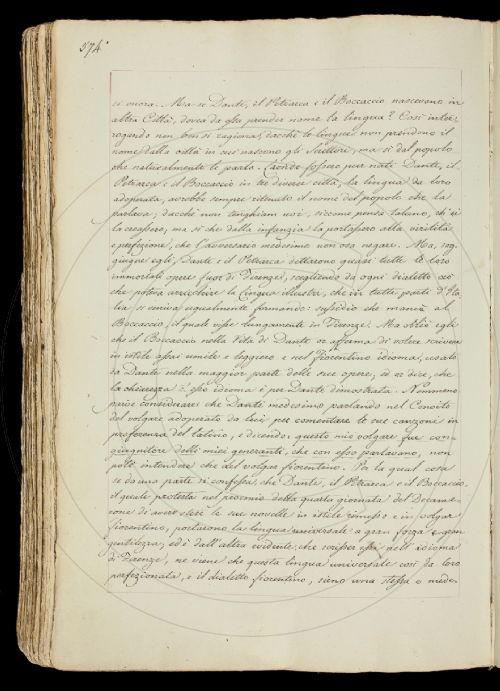 574.
ci onora. Ma se Dante, il Petrarca e il Boccaccio nascevano in
altra Città, dovea da essa prender nome la lingua? Così inter-
rogando non ben si ragiona, dacchè le lingue non prendono il
nome dalla città in cui nascono gli Scrittori, ma sì dal popolo
che naturalmente le parla. Laonde fossero pur nati Dante, il
Petrarca e il Boccaccio in tre diverse città, la lingua da loro
adoperata, avrebbe sempre ritenuto il nome del popolo che la
parlava; dacchè non tenghiam noi, siccome pensa taluno, ch'essi
la creassero, ma sì che dalla infanzia la portassero alla virilità
e perfezione, che l'avversario medesimo non osa negare. Ma, sog-
giunge egli, Dante e il Petrarca dettarono quasi tutte le loro
immortali opere fuor di Firenze, scegliendo da ogni dialetto ciò
che poteva arricchire la lingua illustre, che in tutte parti d'Ita-
lia si veniva egualmente formando: sussidio che mancò al
Boccaccio, il quale visse lungamente in Firenze. Ma oblia egli
che il Boccaccio nella Vita di Dante afferma di volere scrivere
in istile assai umile e leggiero e nel fiorentino idioma, usato
da Dante nella maggior parte delle sue opere, ed ei dice, che
la chiarezza di esso idioma è per Dante dimostrata. Nemmeno
considerare che Dante medesimo parlando nel Convito
del volgare adoperato da lui per comentare le sue canzone in
preferenza del latino, e dicendo: questo mio volgare fue con-
giugnitore delli miei generanti, che con esso parlavano, non
potè intendere che del volgar fiorentino. Per la qual cosa
se da una parte si confessa che Dante, il Petrarca e il Boccaccio,
il quale protesta nel proemio della quarta giornata del Decame-
rone di aver scritte le sue novelle in istile rimesso e in volgar
fiorentino, portarono la lingua universale a gran forza e gran
gentilezza; ed è dall'altra evidente che scrisser essi nell'idioma
di Firenze, ne viene che questa lingua universale così da loro
perfezionata, e il dialetto fiorentino, sieno una stessa e mede-